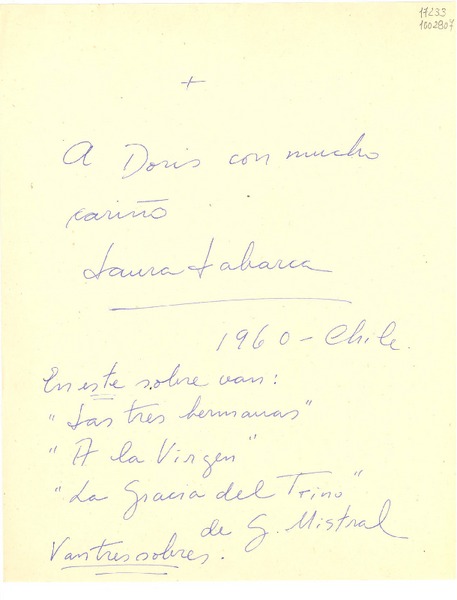 17233
1002807
+
A Doris con mucho
cariño
Laura Labarca
1960 - Chile.
En este sobre van:
"Las tres hermanas"
"A la Virgen"
"La Gracia del Trino"
de G. Mistral
Van tres sobres.